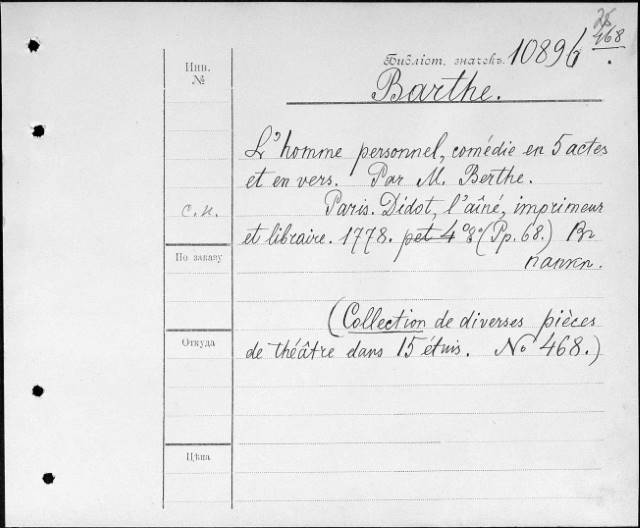 25
468
Инв.
№
Библіот. значекъ. 10896.
Barthe.
L'homme personnel, comédie en 5 actes
et en vers. Par M. Berthe.
с.п.
Paris. Didot, l'aîné, imprimeur
et libraire. 1778. pet 4° 8° (Pp. 68.) Въ
папкп.
По заказу
(Collection de diverses pièces
Откуда
de théâtre dans 15 étuis. No 468.)
Цѣна